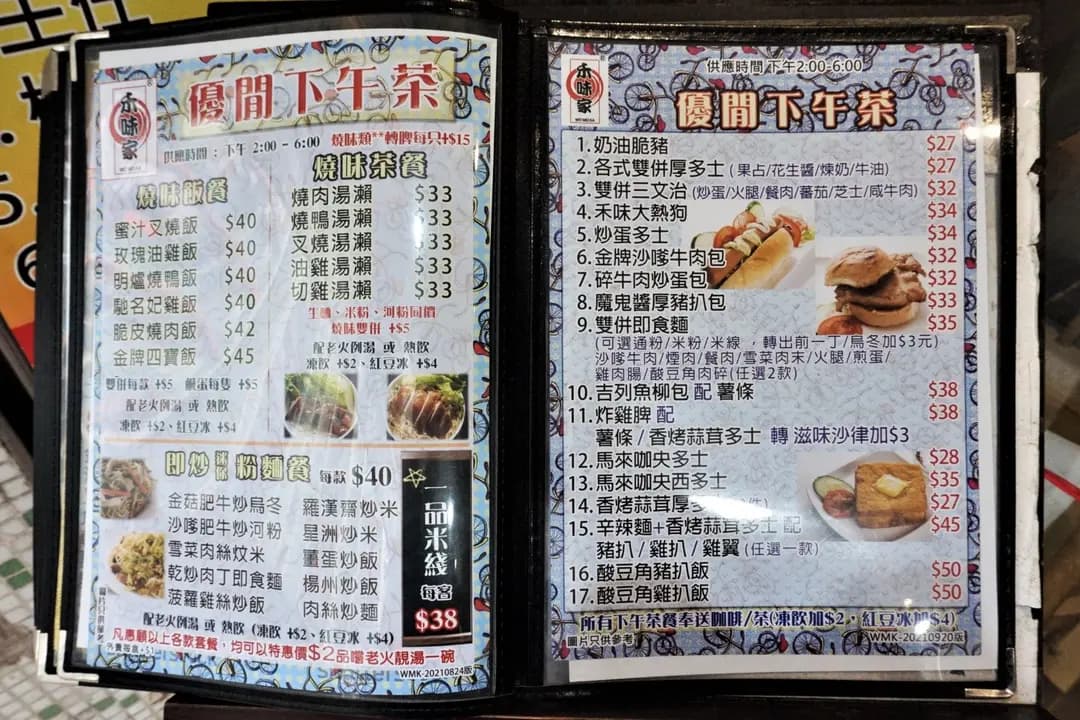 禾味家
優閒下午茶
供應時間：下午 2:00 - 6:00
燒味類**轉髀每只+$15
燒味飯餐
蜜汁叉燒飯 $40
玫瑰油雞飯 $40
明爐燒鴨飯 $40
馳名妃雞飯 $40
脆皮燒肉飯 $42
金牌四寶飯 $45
雙併每款 +$5 鹹蛋每隻 +$5
配老火例湯 或 熱飲
凍飲 +$2、紅豆冰 +$4
燒味茶餐
燒肉湯瀨 $33
燒鴨湯瀨 $33
叉燒湯瀨 $33
油雞湯瀨 $33
切雞湯瀨 $33
米粉、河粉同價
燒味雙併 +$5
配老火例湯 或 熱飲
凍飲 +$2、紅豆冰 +$4
即炒
粉麵餐 每款 $40
金菇肥牛炒烏冬
沙嗲肥牛炒河粉
雪菜肉絲炆米
乾炒肉丁即食麵
菠蘿雞絲炒飯
羅漢齋炒米
星洲炒米
薑蛋炒飯
楊州炒飯
肉絲炒麵
一品米綫
每客
$38
圖片只供參考
配老火例湯 或 熱飲 (凍飲 +$2、紅豆冰 +$4)
凡惠顧以上各款套餐，均可以特惠價$2品嚐老火靚湯一碗
外賣每盒+$1
WMK-20210824版
禾味家
供應時間 下午2:00-6:00
優閒下午茶
1. 奶油脆豬 $27
2. 各式雙併厚多士 (果占/花生醬/煉奶/牛油) $27
3. 雙併三文治 (炒蛋/火腿/餐肉/蕃茄/芝士/咸牛肉) $32
4. 禾味大熱狗 $34
5. 炒蛋多士 $34
6. 金牌沙嗲牛肉包 $32
7. 碎牛肉炒蛋包 $32
8. 魔鬼醬厚豬扒包 $33
9. 雙併即食麵 $35
(可選通粉/米粉/米線，轉出前一丁/烏冬加$3元)
沙嗲牛肉/煙肉/餐肉/雪菜肉末/火腿/煎蛋/
雞肉腸/酸豆角肉碎(任選2款)
10. 吉列魚柳包 配 薯條 $38
11. 炸雞髀 配 $38
薯條/香烤蒜茸多士 轉 滋味沙律加$3
12. 馬來咖央多士 $28
13. 馬來咖央西多士 $35
14. 香烤蒜茸厚多 $27
15. 辛辣麵+香烤蒜茸多士 配 $45
豬扒/雞扒/雞翼 (任選一款)
16. 酸豆角豬扒飯 $50
17. 酸豆角雞扒飯 $50
所有下午茶餐奉送咖啡/茶(凍飲加$2、紅豆冰加$4)
圖片只供參考
WMK-20210920版